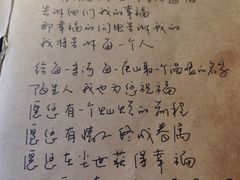 告诉他们我的幸福
那幸福的闪电告诉我的
我将告诉每一个人
给每一条河 每一座山取一个温暖的名字
陌生人 我也为您祝福
愿您有一个灿烂的前程
愿您有情人终成眷属
愿您在尘世获得幸福